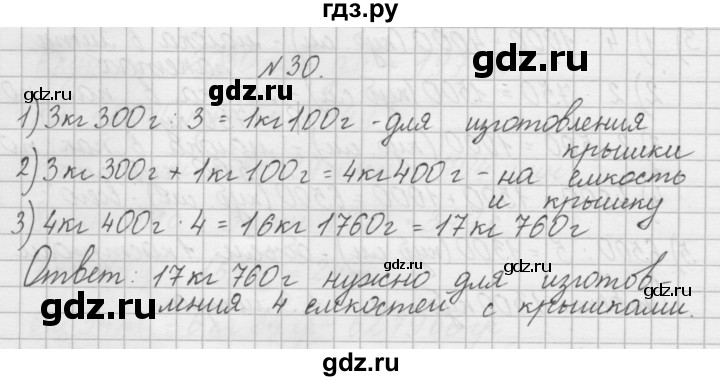 гдз.ру
№30.
gdz.ru gdz.ru
1) 3кг 300г : 3 = 1кг 100г - для изготовления
крышки
2) 3кг 300г + 1кг 100г = 4кг 400г - на емкость
и крышку
3) 4кг 400г · 4 = 16кг 1760г = 17кг 760г
gdz.ru gdz.ru
Ответ: 17кг 760г нужно для изготов-
ления 4 емкостей с крышками.
gdz.ru gdz.ru
gdz.ru